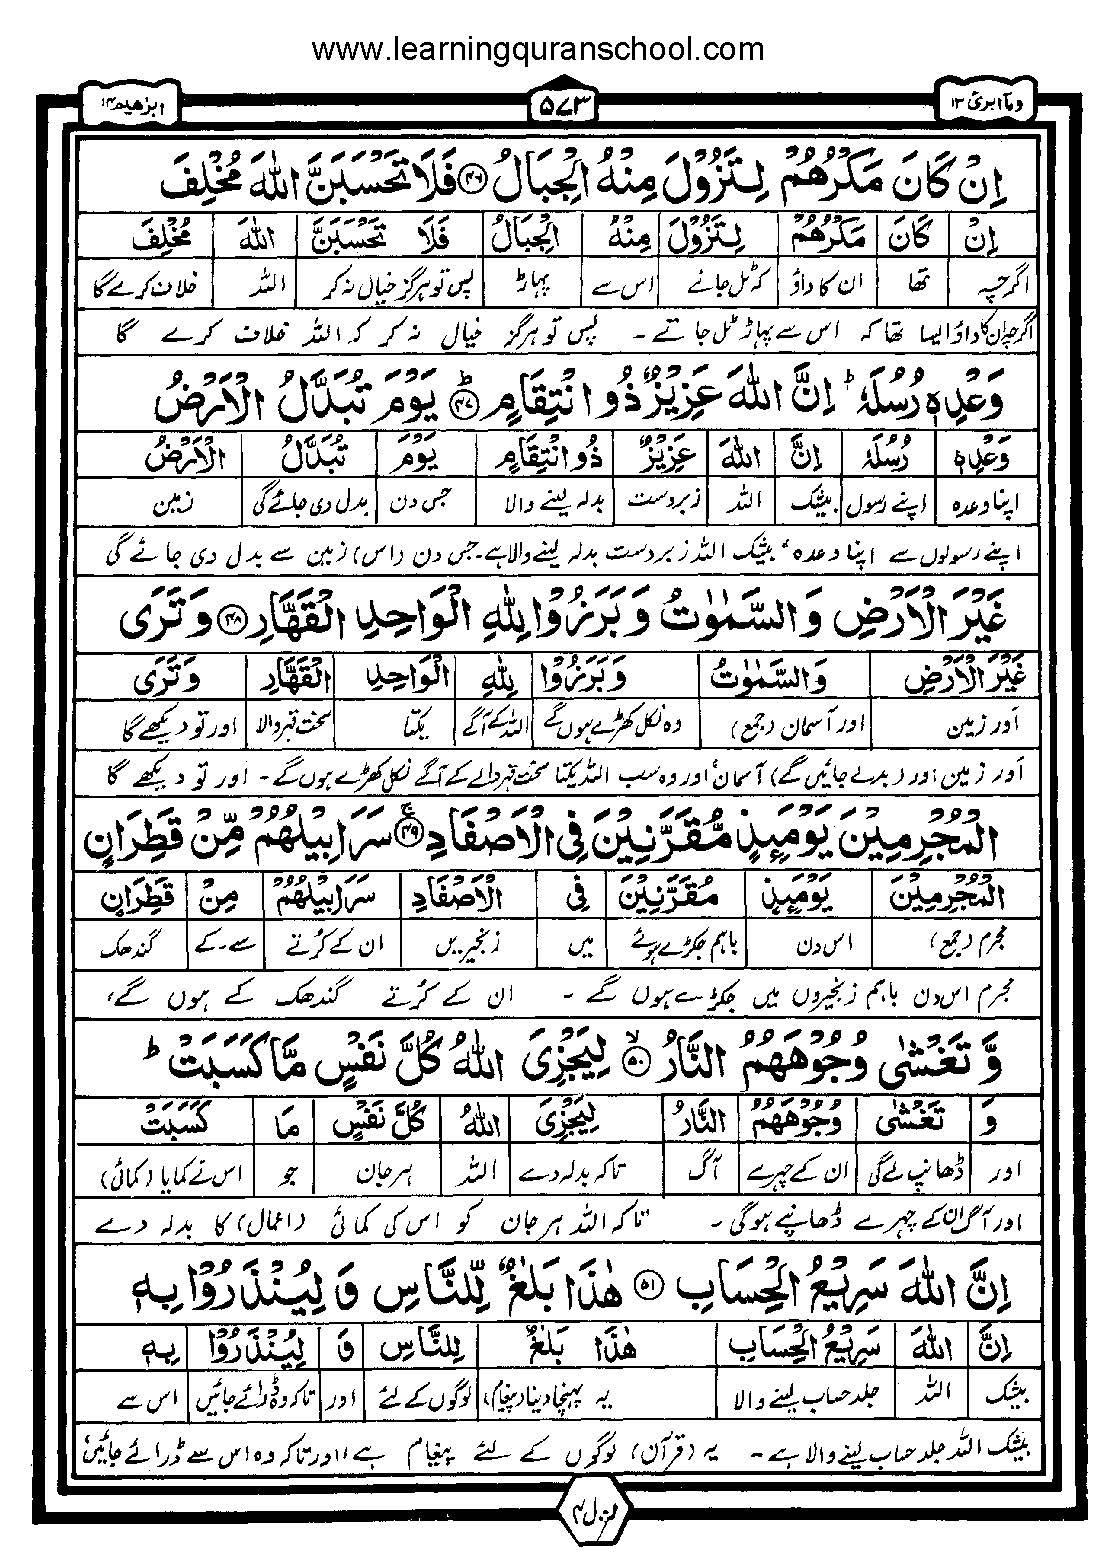 www.learningquranschool.com
ابرٰهيم ١٤
۵۷۳
وماۤ ابرئ ١٣
اِنْ كَانَ مَكْرُهُمْ لِتَزُوْلَ مِنْهُ الْجِبَالُ ۴۶ فَلَا تَحْسَبَنَّ اللّٰهَ مُخْلِفَ
اِنْ كَانَ مَكْرُهُمْ لِتَزُوْلَ مِنْهُ الْجِبَالُ فَلَا تَحْسَبَنَّ اللّٰهَ مُخْلِفَ
اگرچہ تھا ان کا داؤ کہ ٹل جائے اس سے پہاڑ پس تو ہرگز خیال نہ کر اللہ خلاف کرے گا
اگرچہ ان کا داؤ ایسا تھا کہ اس سے پہاڑ ٹل جاتے ۔ پس تو ہرگز خیال نہ کر کہ اللہ خلاف کرے گا
وَعْدِهٖ رُسُلَهٗ ؕ اِنَّ اللّٰهَ عَزِيْزٌ ذُو انْتِقَامٍ ؕ ۴۷ يَوْمَ تُبَدَّلُ الْاَرْضُ
وَعْدِهٖ رُسُلَهٗ اِنَّ اللّٰهَ عَزِيْزٌ ذُو انْتِقَامٍ يَوْمَ تُبَدَّلُ الْاَرْضُ
اپنا وعدہ اپنے رسول بیشک اللہ زبردست بدلہ لینے والا جس دن بدل دی جائے گی زمین
اپنے رسولوں سے اپنا وعدہ، بیشک اللہ زبردست بدلہ لینے والا ہے۔ جس دن (اس) زمین سے بدل دی جائے گی
غَيْرَ الْاَرْضِ وَالسَّمٰوٰتُ وَبَرَزُوْا لِلّٰهِ الْوَاحِدِ الْقَهَّارِ ۴۸ وَتَرَى
غَيْرَ الْاَرْضِ وَالسَّمٰوٰتُ وَبَرَزُوْا لِلّٰهِ الْوَاحِدِ الْقَهَّارِ وَتَرَى
اور زمین اور آسمان (جمع) وہ نکل کھڑے ہوں گے اللہ کے آگے یکتا سخت قہر والا اور تو دیکھے گا
اور زمین اور (بدلے جائیں گے) آسمان، اور وہ سب اللہ یکتا سخت قہر والے کے آگے نکل کھڑے ہوں گے ۔ اور تو دیکھے گا
الْمُجْرِمِيْنَ يَوْمَىِٕذٍ مُّقَرَّنِيْنَ فِى الْاَصْفَادِ ۚ ۴۹ سَرَابِيْلُهُمْ مِّنْ قَطِرَانٍ
الْمُجْرِمِيْنَ يَوْمَىِٕذٍ مُقَرَّنِيْنَ فِى الْاَصْفَادِ سَرَابِيْلُهُمْ مِنْ قَطِرَانٍ
مجرم (جمع) اس دن باہم جکڑے ہوئے میں زنجیریں ان کے کُرتے سے۔کے گندھک
مجرم اس دن باہم زنجیروں میں جکڑے ہوں گے ۔ ان کے کُرتے گندھک کے ہوں گے،
وَّتَغْشٰى وُجُوْهَهُمُ النَّارُ ۙ ۵۰ لِيَجْزِىَ اللّٰهُ كُلَّ نَفْسٍ مَّا كَسَبَتْ ؕ
وَ تَغْشٰى وُجُوْهَهُمُ النَّارُ لِيَجْزِىَ اللّٰهُ كُلَّ نَفْسٍ مَا كَسَبَتْ
اور ڈھانپ لے گی ان کے چہرے آگ تاکہ بدلہ دے اللہ ہر جان جو اس نے کمایا (کمائی)
اور آگ ان کے چہرے ڈھانپے ہوگی ۔ تاکہ اللہ ہر جان کو اس کی کمائی (اعمال) کا بدلہ دے
اِنَّ اللّٰهَ سَرِيْعُ الْحِسَابِ ۵۱ هٰذَا بَلٰغٌ لِّلنَّاسِ وَلِيُنْذَرُوْا بِهٖ
اِنَّ اللّٰهَ سَرِيْعُ الْحِسَابِ هٰذَا بَلٰغٌ لِلنَّاسِ وَ لِيُنْذَرُوْا بِهٖ
بیشک اللہ جلد حساب لینے والا یہ پہنچا دینا (پیغام) لوگوں کے لئے اور تاکہ وہ ڈرائے جائیں اس سے
بیشک اللہ جلد حساب لینے والا ہے ۔ یہ (قرآن) لوگوں کے لئے پیغام ہے اور تاکہ وہ اس سے ڈرائے جائیں،
منزل ۳